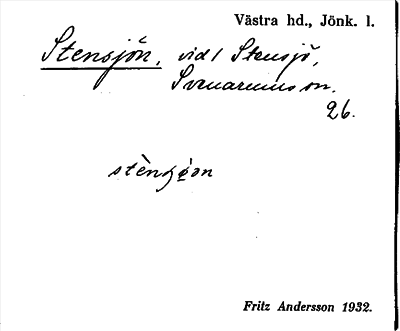 Västra hd., Jönk. l.
Stensjön, vid 1 Stensjö,
Svenarums sn.
26.
Fritz Andersson 1932.